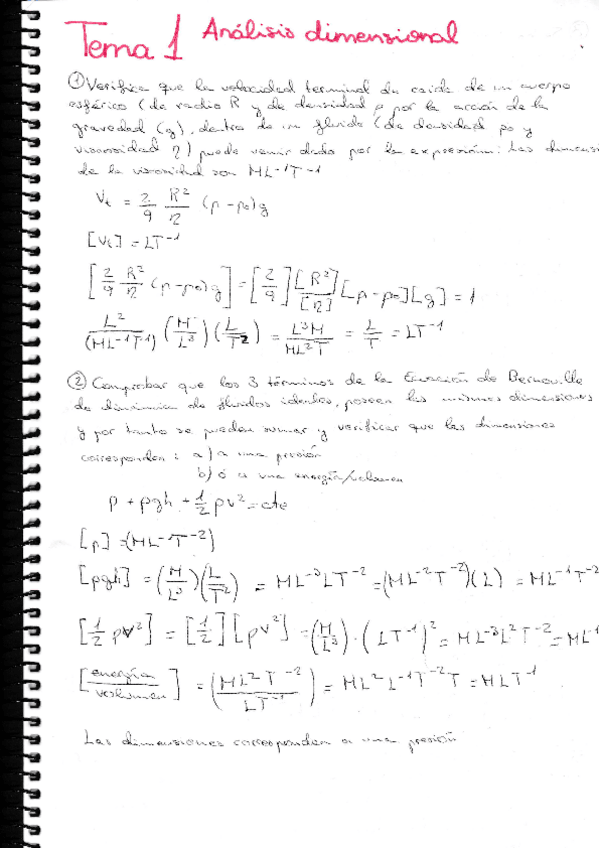 Tema 1 Análisis dimensional
① Verifica que la velocidad terminal de caída de un cuerpo
esférico (de radio R y de densidad ρ por la acción de la
gravedad (g), dentro de un fluido (de densidad ρ₀ y
viscosidad η) puede venir dado por la expresión: Las dimens
de la viscosidad son ML⁻¹T⁻¹
Vₜ = 2/9 R²/η (ρ-ρ₀)g
[Vₜ] = LT⁻¹
[2/9 R²/η (ρ-ρ₀)g] = [2/9] [R²]/[η] [ρ-ρ₀][g] = 1
L²/(ML⁻¹T⁻¹) (M/L³) (L/T²) = L³M/ML²T = L/T = LT⁻¹
② Comprobar que los 3 términos de la Ecuación de Bernouille
de dinámica de fluidos ideales, poseen las mismas dimensiones
y por tanto se pueden sumar y verificar que las dimensiones
corresponden: a) a una presión
b) ó a una energía/volumen
p + ρgh + 1/2 ρv² = cte
[p] = (ML⁻¹T⁻²)
[ρgh] = (M/L³)(L/T²) = ML⁻³LT⁻² = (ML⁻²T⁻²)(L) = ML⁻¹T⁻²
[1/2 ρv²] = [1/2][ρv²] = (M/L³)·(LT⁻¹)² = ML⁻³L²T⁻² = ML⁻¹
[energía/volumen] = (ML²T⁻²/LT⁻¹) = ML²L⁻¹T⁻²T = MLT⁻¹
Las dimensiones corresponden a una presión